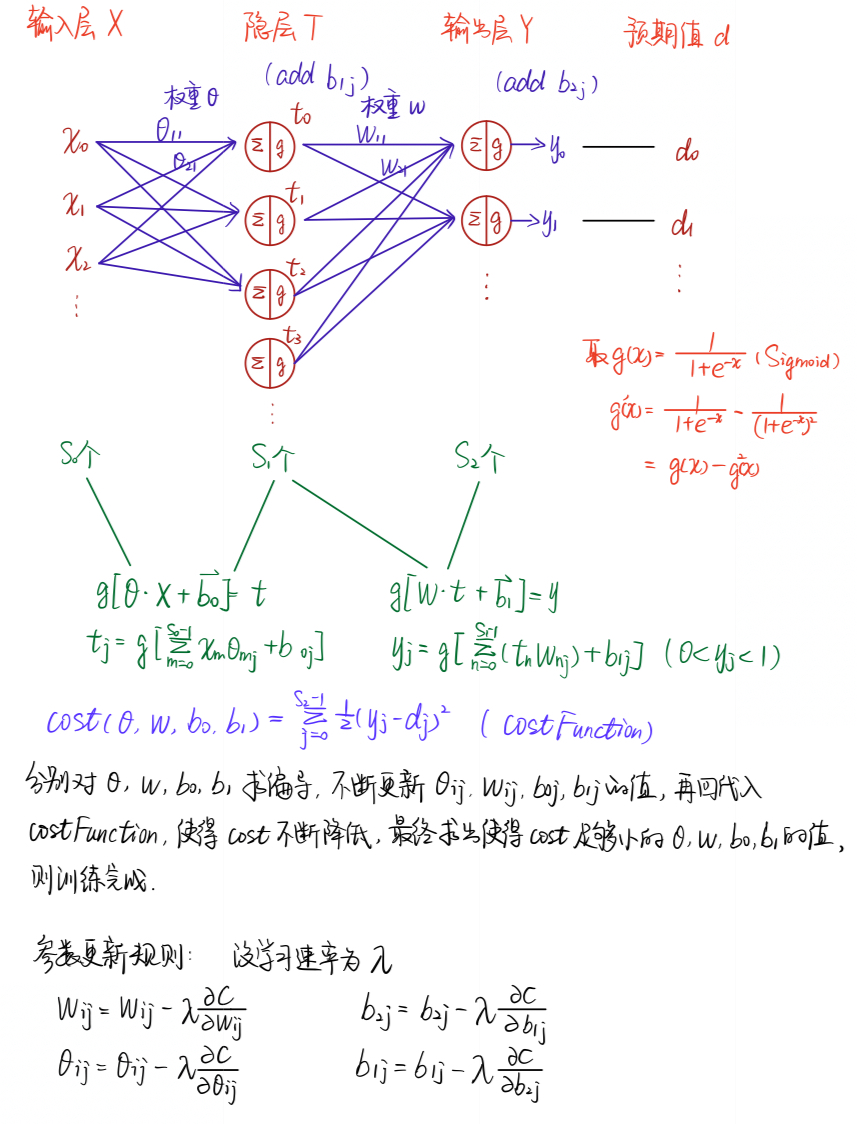 输入层 X 隐层 T 输出层 Y 预期值 d
(add b₁ⱼ) (add b₂ⱼ)
权重 θ 权重 w
x₀ θ₁₁ θ₂₁ Σ|g t₀ W₁₁ W₂₁ Σ|g y₀ d₀
x₁ Σ|g t₁ Σ|g y₁ d₁
x₂ Σ|g t₂
Σ|g t₃
取 g(x) = 1/(1+e⁻ˣ) (Sigmoid)
g'(x) = 1/(1+e⁻ˣ) - 1/(1+e⁻ˣ)²
= g(x) - g²(x)
S₀个 S₁个 S₂个
g[θ·X + b₀] = t g[W·t + b₁] = y
tⱼ = g[Σ_{m=0}^{S₀-1} xₘθₘⱼ + b₀ⱼ] yⱼ = g[Σ_{n=0}^{S₁-1} (tₙWₙⱼ) + b₁ⱼ] (0 < yⱼ < 1)
cost(θ, W, b₀, b₁) = Σ_{j=0}^{S₂-1} ½(yⱼ - dⱼ)² (costFunction)
分别对 θ, w, b₀, b₁ 求偏导, 不断更新 θᵢⱼ, Wᵢⱼ, b₀ⱼ, b₁ⱼ 的值, 再回代入
costFunction, 使得 cost 不断降低, 最终求出使得 cost 足够小的 θ, w, b₀, b₁ 的值,
则训练完成.
参数更新规则: 设学习速率为 λ
Wᵢⱼ = Wᵢⱼ - λ ∂C/∂Wᵢⱼ b₂ⱼ = b₂ⱼ - λ ∂C/∂b₁ⱼ
θᵢⱼ = θᵢⱼ - λ ∂C/∂θᵢⱼ b₁ⱼ = b₁ⱼ - λ ∂C/∂b₂ⱼ